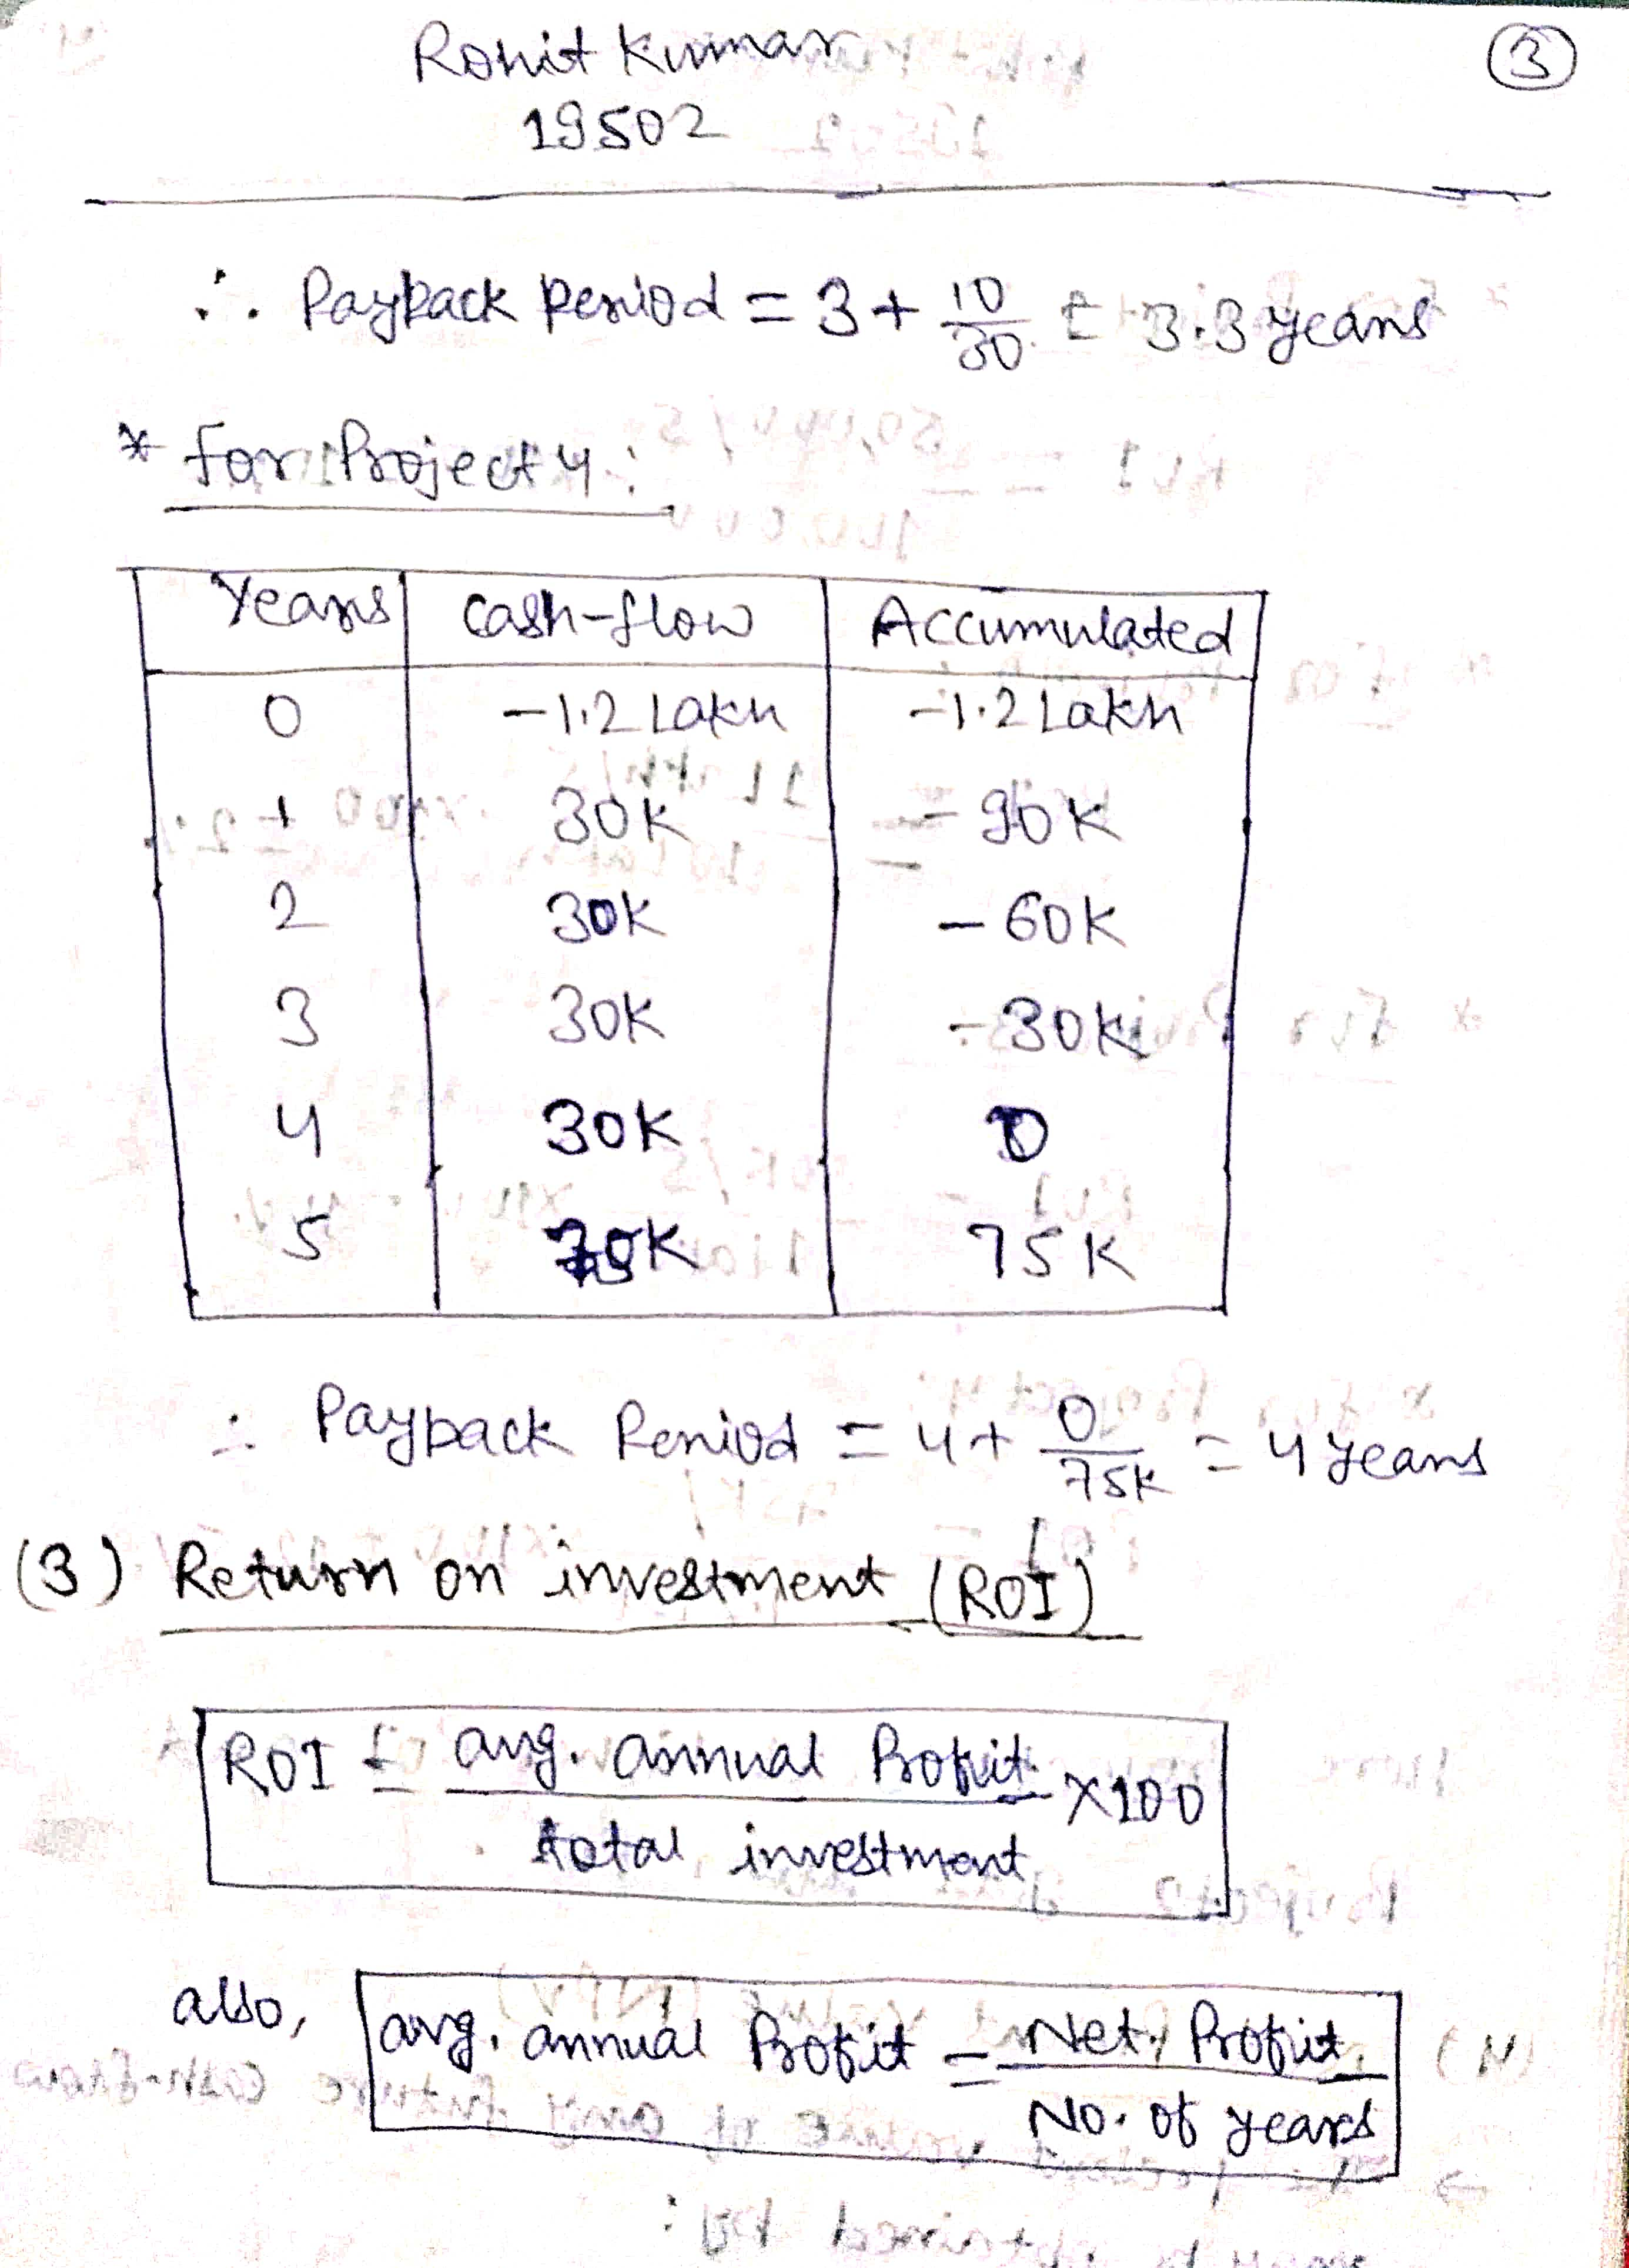 Rohit Kumar
③
19502
∴ Payback Period = 3 + 10/30 = 3.3 years
* for Project 4 :
Years | cash-flow | Accumulated
0 | -1.2 Lakh | -1.2 Lakh
1 | 30K | -90K
2 | 30K | -60K
3 | 30K | -30K
4 | 30K | 0
5 | 75K | 75K
∴ Payback Period = 4 + 0/75K = 4 years
(3) Return on investment (ROI)
ROI = avg. annual Profit / total investment × 100
also, avg. annual Profit = Net Profit / No. of years